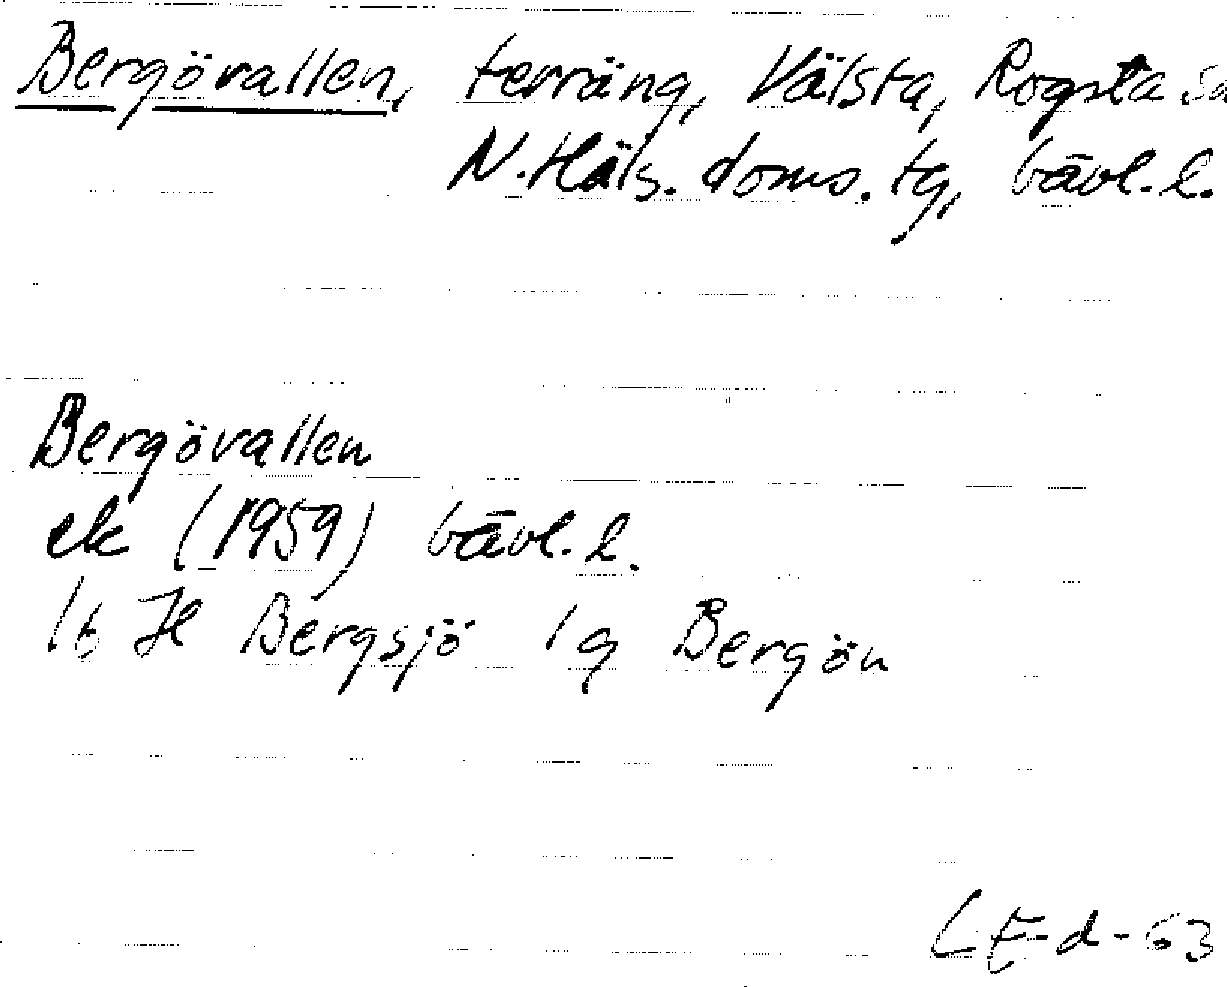 Bergövallen, terräng, Välsta, Rogsta sn
N. Häls. doms. tg, Gävl. l.
Bergövallen
ek (1959) Gävl. l.
16 H Bergsjö 1 g Bergön
d-63